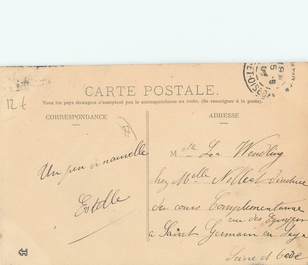 CARTE POSTALE.
Tous les pays étrangers n'acceptent pas la correspondance au recto. (Se renseigner à la poste).
CORRESPONDANCE
ADRESSE
12€
Un peu de nouvelle
Estelle
Melle Léa Wendling
chez Melle Nollent directrice
du cours Complémentaire
rue des
à Saint Germain en Laye
Seine et Oise